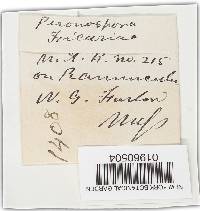 Peronospora
Ficariae
M. A. H. no. 215
on Ranunculus
W. G. Farlow
Mass
1408
01960504
NEW YORK BOTANICAL GARDEN